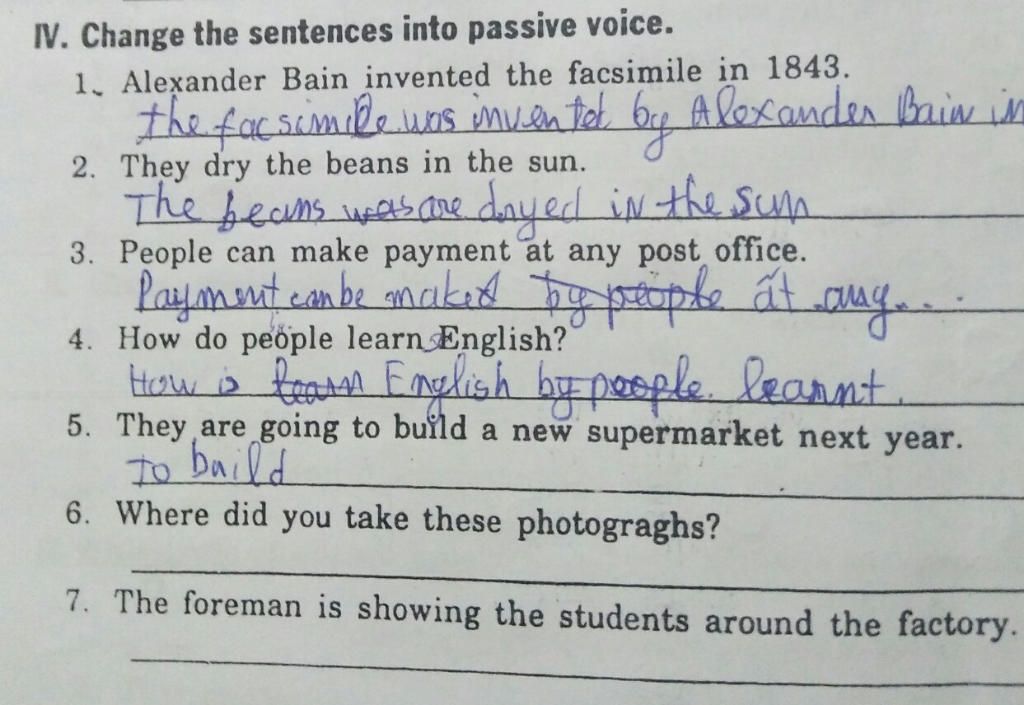 IV. Change the sentences into passive voice.
1. Alexander Bain invented the facsimile in 1843.
the facsimile was invented by Alexander Bain in
2. They dry the beans in the sun.
The beans was are dryed in the sun
3. People can make payment at any post office.
Payment can be maked by people at any...
4. How do people learn English?
How is learn English by people. learnt.
5. They are going to build a new supermarket next year.
To build
6. Where did you take these photograghs?
7. The foreman is showing the students around the factory.